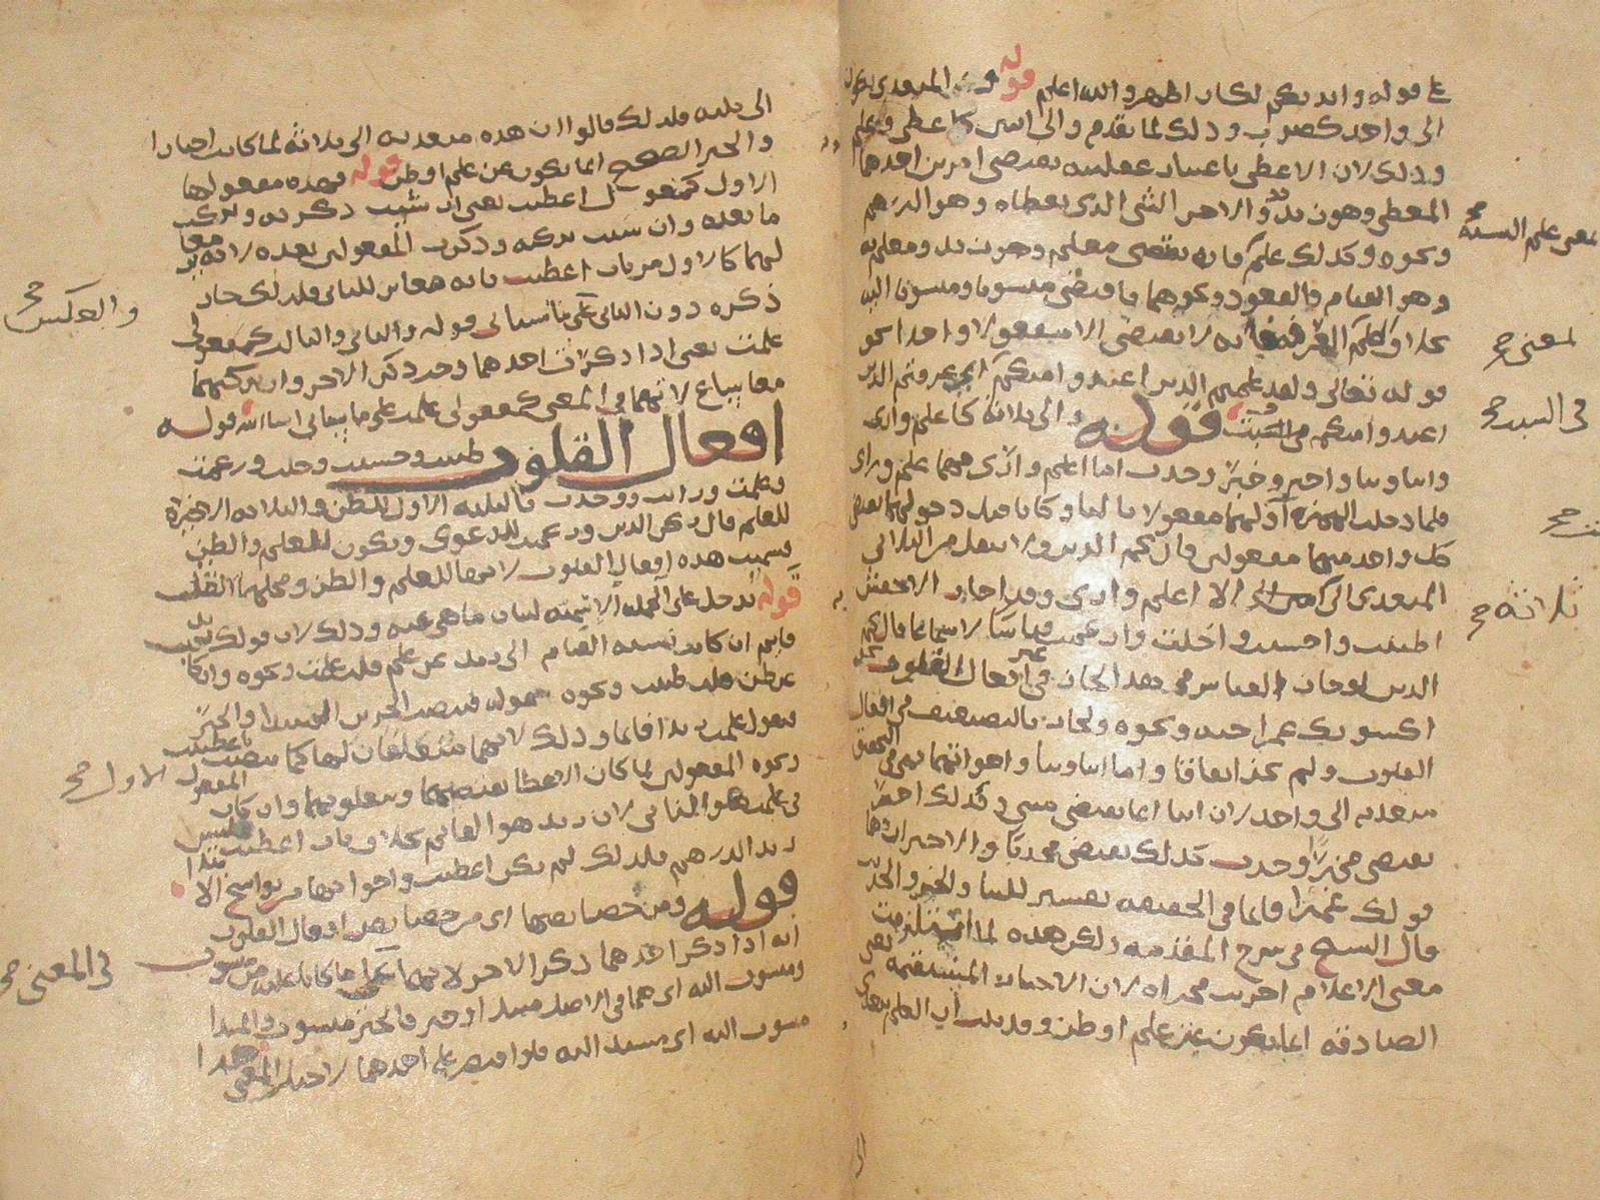 على قوله وان يكم لكان اظهر والله اعلم قوله والمتعدى يكون
الى واحد كضرب وذلك لما تقدم والى اثنين كاعطى وعلم
وذلك لان الاعطى باعتبار عقليته يقتضى امرين احدهما
المعطى وهون يد والاخر الشى الذى يعطاه وهو الدرهم
ونحوه وكذلك علم فانه يقتضى معلم وهون يد ومعلم به
وهو القيام والقعود ونحوهما فاقتضى منسوبا ومنسوبا اليه
بخلاف علم العرفية فانه لا يقتضى الا مفعولا واحدا نحو
قوله تعالى ولقد علمتم الذين اعتدوا منكم اى عرفتم الذين
اعتدوا منكم فى السبت قوله والى ثلاثة كاعلم وارى
وانبا ونبا واخبر وخبر وحدث اما اعلم وارى فهما علم وراى
فلما دخلت الهمزة اولهما مفعولا ثالثا وكانا قبل دخولهما يقتضى
كل واحد منهما مفعولين قال نجم الدين ولا ينقل من الثلاثى
المتعدى الى اثنين الى الا اعلم وارى وقد اجاز الاخفش
اظننت واحسبت واخلت وازعمت قياسا لا سماعا قال نجم
الدين لو جاز القياس فى هذا لجاز فى غير افعال القلوب نحو
اكسوتك عمرا جبة ونحوه ولجاز بالتضعيف فى افعال
القلوب ولم يجز اتفاقا واما انبا ونبا واخواتهما فهى فى التحقيق
متعدية الى واحد لان انبا انما يقتضى منبى وكذلك اخبر
يقتضى مخبرا وحدث كذلك يقتضى محدثا والاخيران فى
قولك عمرا قائما فى الحقيقة تفسير للنبا والخبر والحديث
قال الشيخ فى شرح المقدمة ولكن هذه لما استلزمت
معنى الاعلام اجريت مجراه لان الاخبار المستقيمة يعنى
الصادقة انما يكون عن علم او ظن وقد يثبت ان العلم يتعدى
الى
معنى علم النسبة صح
لمعنى صح
فى السبت صح
ثلاثة صح
الى ثلاثة فلذلك قالوا ان هذه متعدية الى ثلاثة لما كانت اخبارا
والخبر الصحيح انما يكون عن علم او ظن قوله فهذه مفعولها
الاول كمفعول اعطيت يعنى ان شئت ذكرته وتركت
ما بعده وان شئت تركته وذكرت المفعولين بعده لانه مغاير
لهما كالاول من باب اعطيت فانه مغاير للثانى فلذلك جاز
ذكره دون الثانى على ما سياتى قوله والثانى والثالث كمفعولى
علمت يعنى اذا ذكرت احدهما وجب ذكر الاخر وان تركتهما
معا ساغ لانهما فى المعنى كمفعولى علمت على ما سياتى ان شاء الله قوله
افعال القلوب ظننت وحسبت وخلت وزعمت
وعلمت ورايت ووجدت فالثلاثة الاول للظن والثلاثة الاخيرة
للعلم قال نجم الدين وزعمت للدعوى ويكون للعلم والظن
وسميت هذه افعال القلوب لانها للعلم والظن ومحلهما القلب
قوله تدخل على الجملة الاسمية لبيان ماهى عنه وذلك لان قولك زيد
قايم ان كان نسبة القيام الى زيد عن علم قلت علمت ونحوه وان كان
عن ظن قلت ظننت ونحوه قوله فتنصب الجزءين المبتدا والخبر
فتقول علمت زيدا قائما وذلك لانهما متعلقان لها كما نصبت باعطيت
ونحوه المفعولين لما كان الاعطا يقتضيهما ومتعلق بهما وان كان
فى علمت هو الثانى لان زيد هو القائم بخلاف باب اعطيت فليس
زيد الدرهم فلذلك لم يكن اعطيت واخواتها من نواسخ الابتدا
قوله ومن خصائصها اى من خصائص افعال القلوب
انه اذا ذكر احدهما ذكر الاخر لانهما كما كانا عليه من منسوب
ومنسوب اليه اى هما فى الاصل مبتدا وخبر فالخبر منسوب والمبتدا
منسوب اليه اى مسند اليه فلو اقتصر على احدهما لاختل المعنى
والعكس صح
المفعول الاول صح
فى المعنى صح